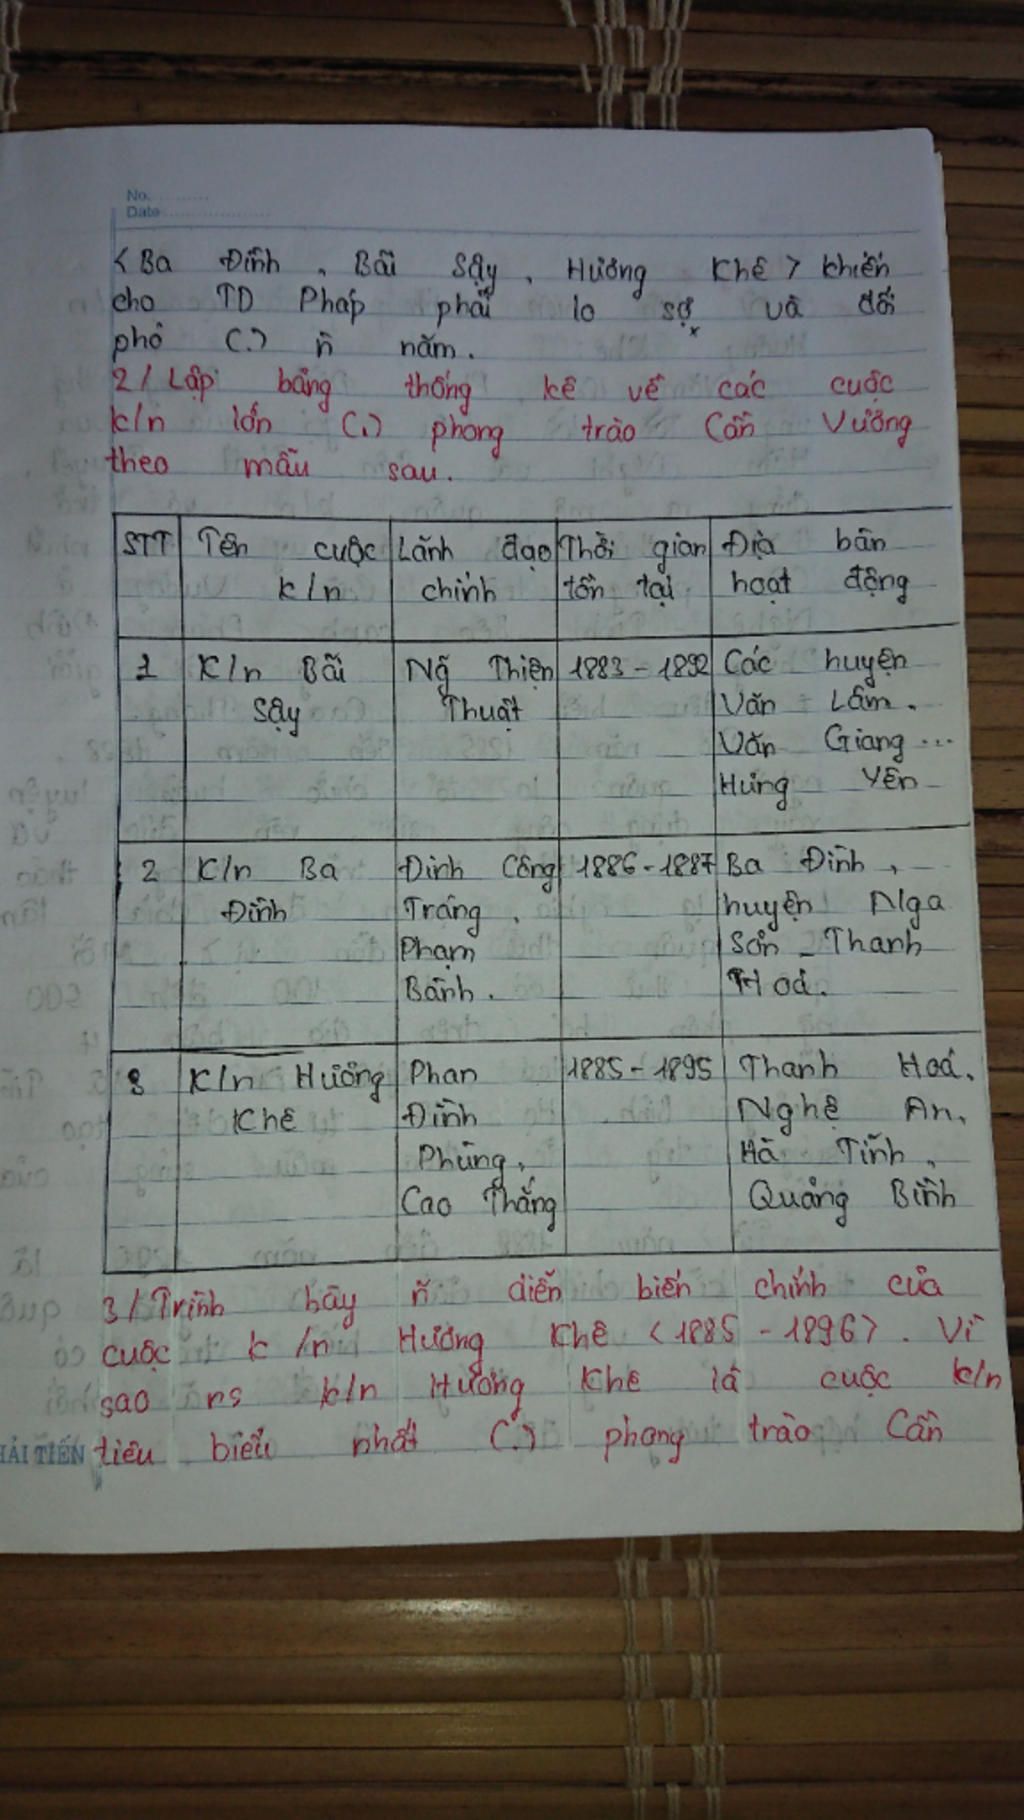 No.
Date
< Ba Đình , Bãi Sậy , Hương Khê > khiến
cho TD Pháp phải lo sợ và đối
phó (.) ñ năm.
2/ Lập bảng thống kê về các cuộc
k/n lớn (.) phong trào Cần Vương
theo mẫu sau.
STT | Tên cuộc k/n | Lãnh đạo chính | Thời gian tồn tại | Địa bàn hoạt động
1 | K/n Bãi Sậy | Ng~ Thiện Thuật | 1883 - 1892 | Các huyện Văn Lâm. Văn Giang ... Hưng Yên
2 | K/n Ba Đình | Đinh Công Tráng, Phạm Bành. | 1886 - 1887 | Ba Đình, huyện Nga Sơn - Thanh Hoá.
3 | K/n Hương Khê | Phan Đình Phùng, Cao Thắng | 1885 - 1895 | Thanh Hoá, Nghệ An, Hà Tĩnh, Quảng Bình
3/ Trình bày ñ diễn biến chính của
cuộc k/n Hương Khê < 1885 - 1896 > . Vì
sao ns k/n Hương Khê là cuộc k/n
HẢI TIẾN tiêu biểu nhất (.) phong trào Cần